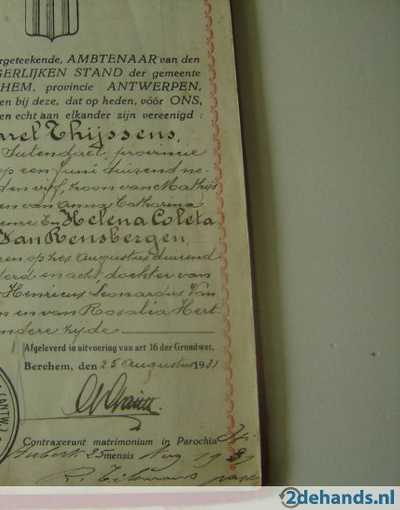 rgeteekende, AMBTENAAR van den
GERLIJKEN STAND der gemeente
HEM, provincie ANTWERPEN,
en bij deze, dat op heden, vóór ONS,
en echt aan elkander zijn vereenigd :
arel Thijssens,
provincie
op een Juni duizend ne-
den vijf, zoon van Mathijs
en van Anna Catharina
En Helena Coleta
Van Rensbergen,
en op zes Augustus duizend
derd en acht, dochter van
Henricus Leonardus Van
en van Rosalia Hert
andere zyde
Afgeleverd in uitvoering van art 16 der Grondwet,
Berchem, den 25 Augustus 1931
(ANTW.)
Contraxerunt matrimonium in Parochia
25 mensis Aug 1931
2dehands.nl